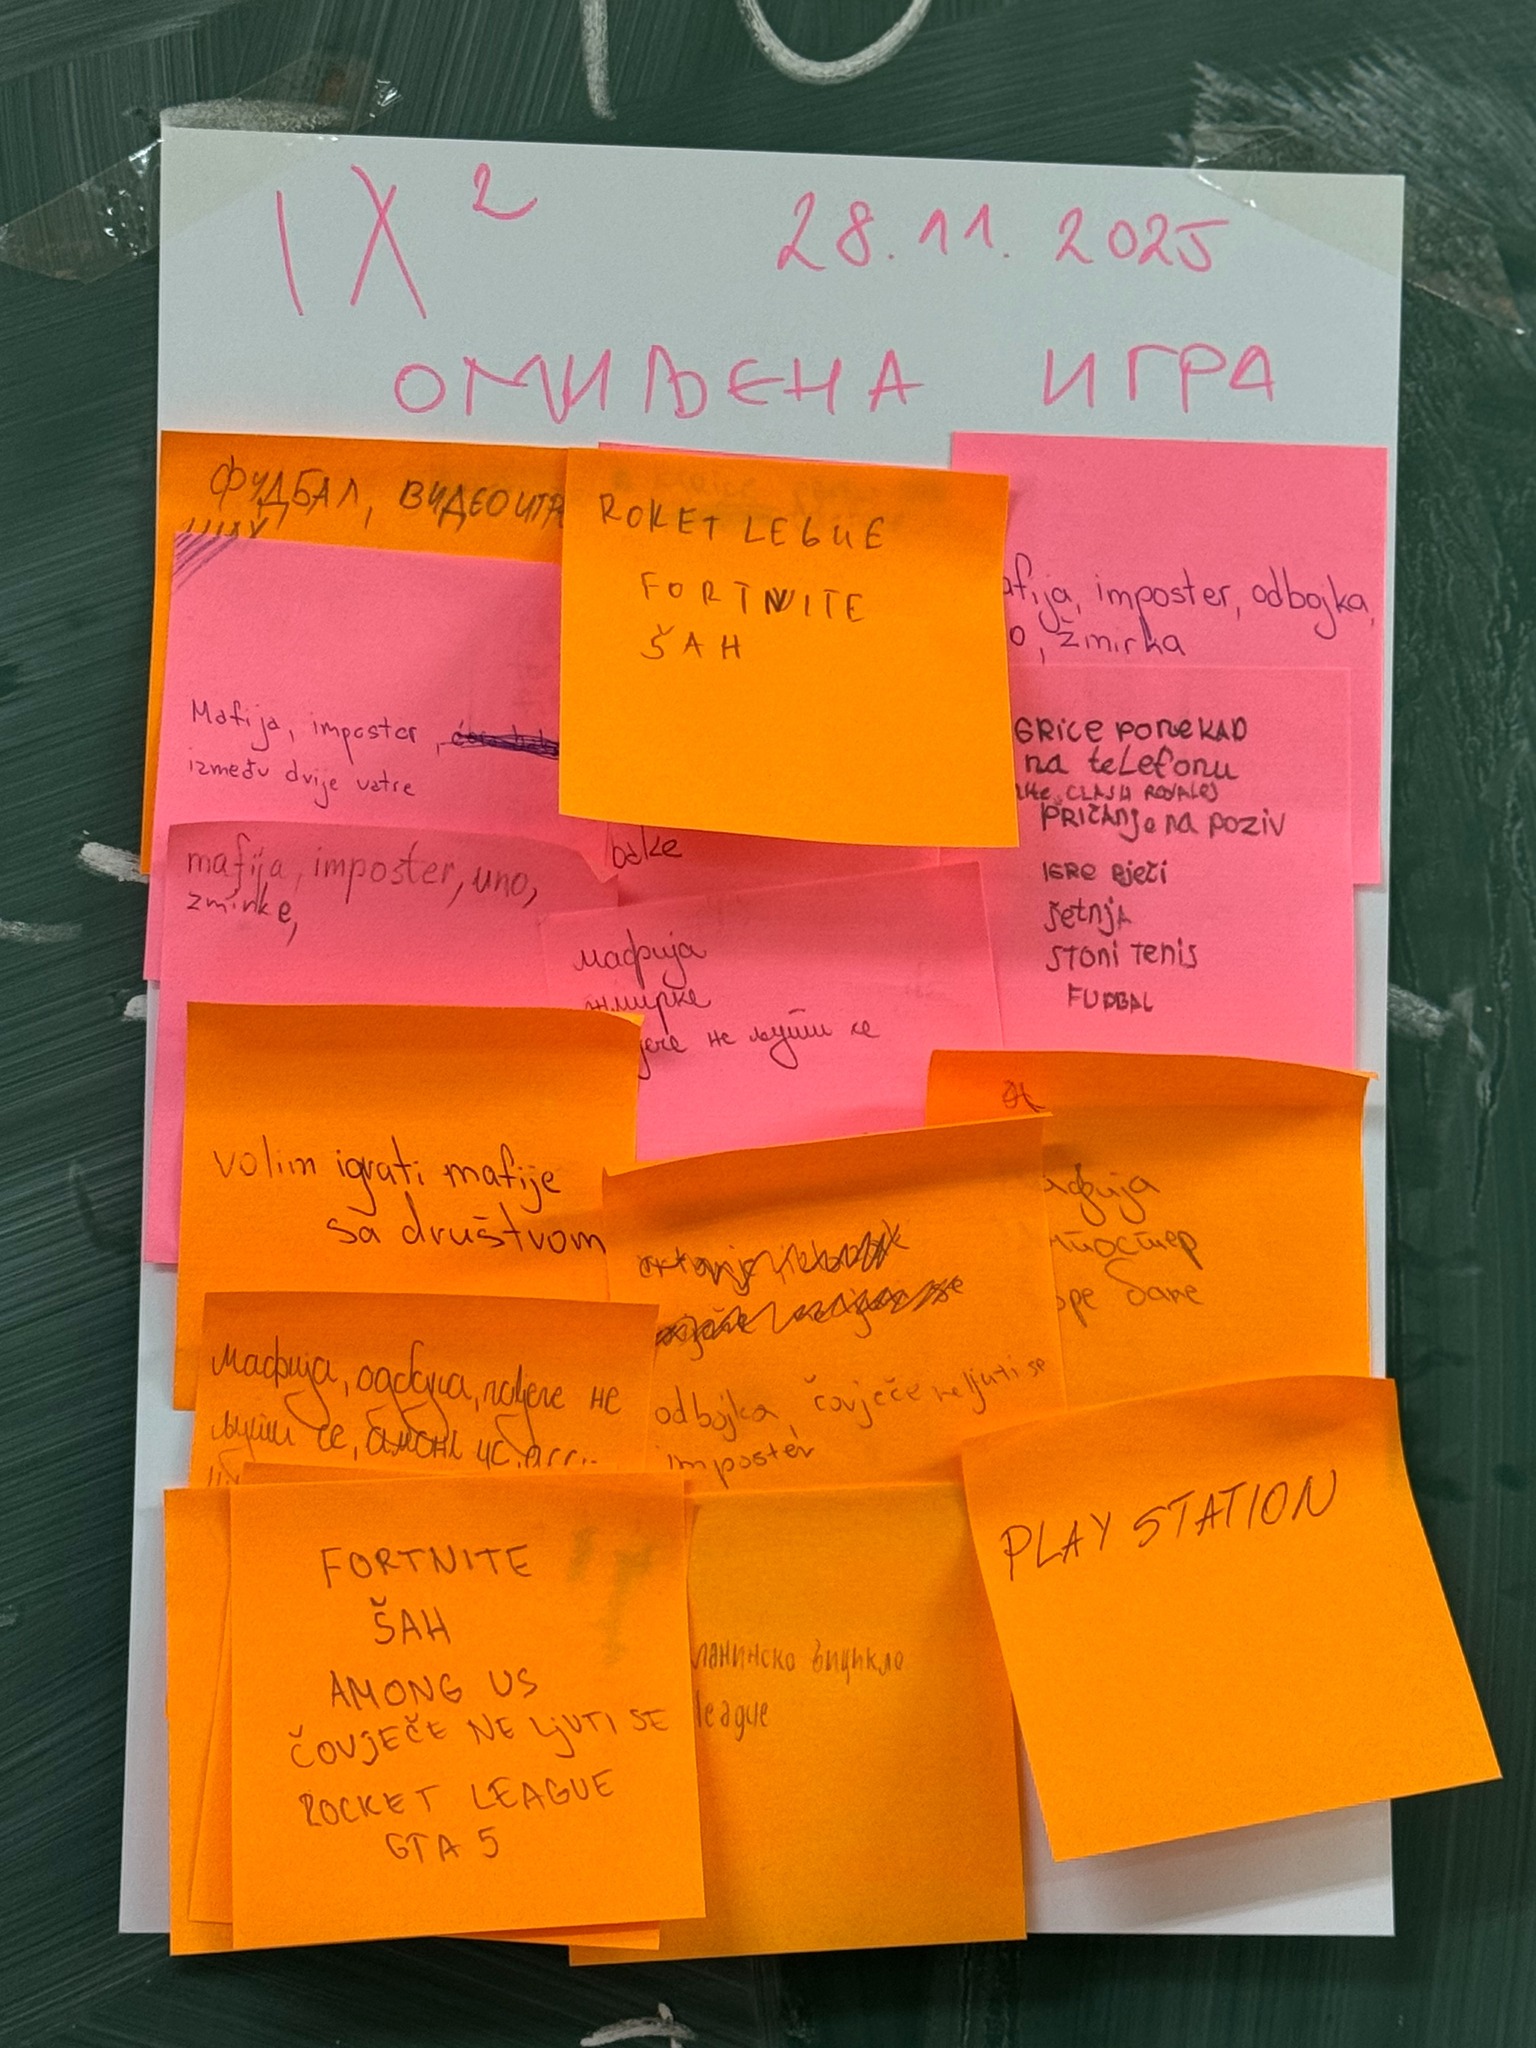 IX²
28.11.2025
ОМИЉЕНА ИГРА
ФУДБАЛ, ВИДЕОИГР
ROKET LEGUE
FORTNITE
ŠAH
afija, imposter, odbojka,
o, žmirka
Mafija, imposter,
između dvije vatre
GRICE PONEKAD
na teLefonu
CLASH ROYALE)
PRIČANje na POZIV
IGRE RIJEČI
šetnjA
STONI TENIS
FUDBAL
mafija, imposter, uno,
zmirke,
мафија
жмирке
јече не љути се
volim igrati mafije
sa društvom
афија
мпостер
оре баке
odbojka, čovječe ne ljuti se
imposter
Мафија, одбојка, човјече не
љути се, амонг ус,
FORTNITE
ŠAH
AMONG US
ČOVJEČE NE LJUTI SE
ROCKET LEAGUE
GTA 5
ланинско бицикло
league
PLAY STATION